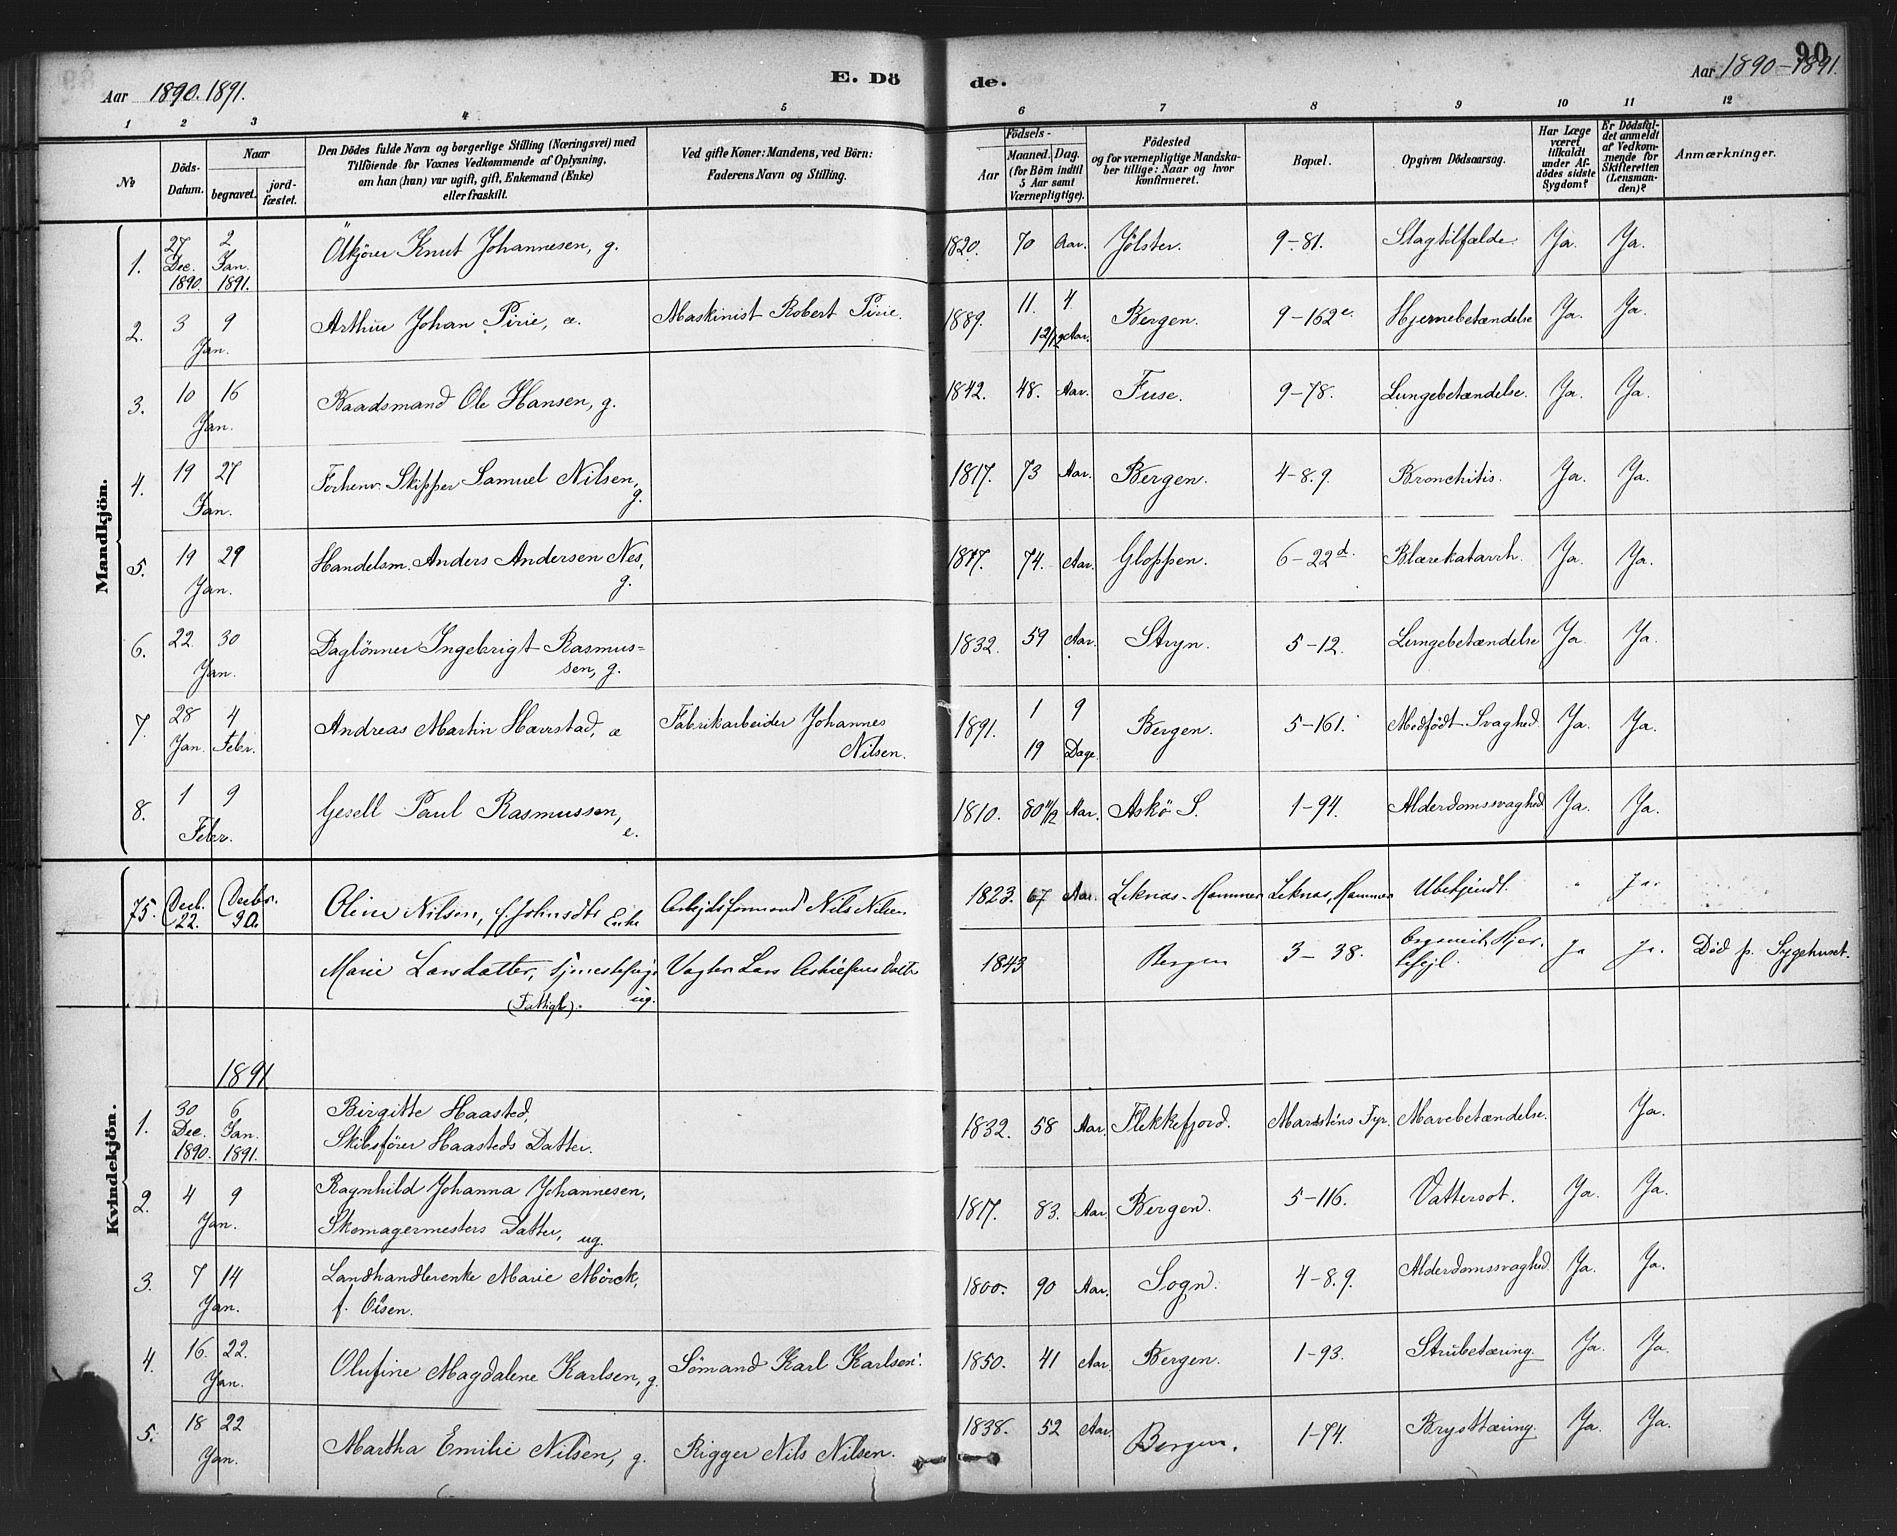 90
Aar 1890. 1891.
E. Dö de.
Aar 1890-1891.
1 2 3 4 5 6 7 8 9 10 11 12
No
Döds-Datum.
Naar
begravet.
jord-fæstet.
Den Dödes fulde Navn og borgerlige Stilling (Næringsvei) med
Tilföiende for Voxnes Vedkommende af Oplysning,
om han (hun) var ugift, gift, Enkemand (Enke)
eller fraskilt.
Ved gifte Koner: Mandens, ved Börn:
Faderens Navn og Stilling.
Födsels-
Aar
Maaned. Dag.
(for Börn indtil
5 Aar samt
Værnepligtige).
Födested
og for værnepligtige Mandska-
ber tillige: Naar og hvor
konfirmeret.
Bopæl.
Opgiven Dödsaarsag.
Har Læge
været
tilkaldt
under Af-
dödes sidste
Sygdom?
Er Dödsfal-
det anmeldt
af Vedkom-
mende for
Skifteretten
(Lensman-
den)?
Anmærkninger.
Mandkjön.
1. 27 Dec. 1890. 2 Jan. 1891. Ölkjører Knut Johannesen, g. 1820. 70 Aar. Jölster. 9-81. Slagtilfælde. Ja. Ja.
2. 3 9 Jan. Arthur Johan Pirie, æ. Maskinist Robert Pirie. 1889. 11. 4 1 2/12 Aar. Bergen. 9-162e. Hjernebetændelse Ja. Ja.
3. 10 16 Jan. Baadsmand Ole Hansen, g. 1842. 48. Aar. Fuse. 9-78. Lungebetændelse. Ja. Ja.
4. 19 27 Jan. Forhenv. Skipper Samuel Nilsen, g. 1817. 73 Aar. Bergen. 4-8.9. Bronchitis. Ja. Ja.
5. 19 29 Jan. Handelsm. Anders Andersen Nes, g. 1817. 74. Aar. Gloppen. 6-22d. Blærekatarrh. Ja. Ja.
6. 22 30 Jan. Daglönner Ingebrigt Rasmus-
sen, g. 1832. 59 Aar. Stryn. 5-12. Lungebetændelse Ja. Ja.
7. 28 Jan. 4 Febr. Andreas Martin Harrstad, æ Fabrikarbeider Johannes
Nilsen. 1891. 1 9 19 Dage. Bergen. 5-161. Medfödt Svaghed. Ja. Ja.
8. 1 9 Febr. Gesell Paul Rasmussen, e. 1810. 80 11/12 Aar. Askö S. 1-94. Alderdomssvaghed Ja. Ja.
Kvindekjön.
75. Decb. 22. Decbr. 30. Oline Nilsen, f. Johnsdtr Enke Arbejdsformand Nils Nilsen 1823. 67 Aar. Leknas-Hammer Leknas, Hammer Ubekjendt. " Ja.
Marie Larsdatter, tjenestepige ug.
(Fattigl). Vægter Lars Datter 1843 Bergen 3-38. Organisk Hjer-
tefejl. Ja Ja. Död p. Sygehuset.
1891
1. 30 Dec. 1890. 6 Jan. 1891. Birgitte Haasted,
Skibsförer Haasteds Datter. 1832. 58 Aar. Flekkefjord. Marstens Fyr. Mavebetændelse. Ja.
2. 4 9 Jan. Ragnhild Johanna Johannesen,
Skomagermesters Datter, ug. 1817. 83. Aar. Bergen. 5-116. Vattersot. Ja. Ja.
3. 7 14 Jan. Landhandlerenke Marie Mörck,
f. Olsen. 1800. 90 Aar. Sogn. 4-8.9. Alderdomssvaghed. Ja. Ja.
4. 16. 22. Jan. Olufine Magdalene Karlsen, g. Sömand Karl Karlsen. 1850. 41 Aar. Bergen. 1-93. Strubetæring Ja. Ja.
5. 18 22 Jan. Martha Emilie Nilsen, g. Rigger Nils Nilsen. 1838. 52 Aar. Bergen. 1-74. Brysttæring Ja. Ja.